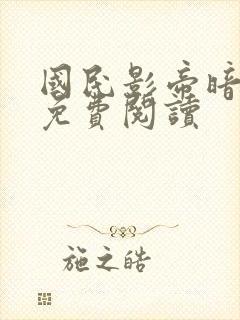 國民影帝暗
免費閱讀
施之皓